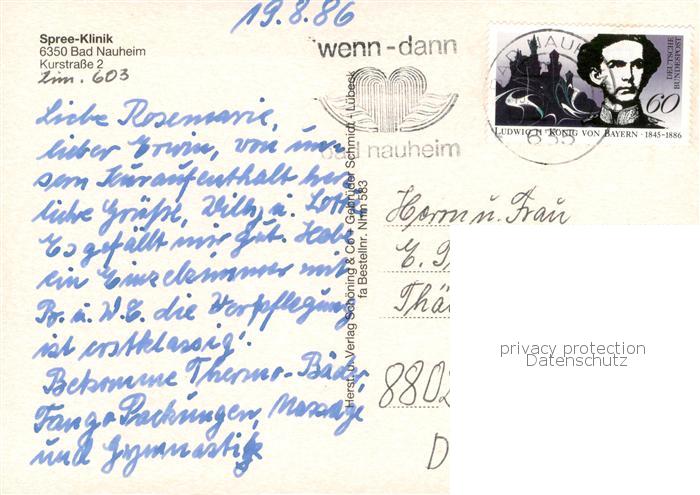 19.8.86
Spree-Klinik
6350 Bad Nauheim
Kurstraße 2
Zim. 603
Liebe Rosemarie,
lieber Erwin, von un-
serm Kuraufenthalt herz
liche Grüße, Willy u. Lotte
Es gefällt mir gut. Habe
ein Einzelzimmer mit
B. u. W.C. die Verpflegung
ist erstklassig!
Bekomme Thermo-Bäder,
Fango Packungen, Massage
und Gymnastik
wenn-dann
bad nauheim
Herst. u. Verlag Schöning & Co + Gebrüder Schmidt - Lübeck
fa Bestellnr. NHn 583
BAD NAUHEIM
635
DEUTSCHE
BUNDESPOST
60
LUDWIG II. KÖNIG VON BAYERN · 1845-1886
Herrn u. Frau
E.
8802
D
privacy protection
Datenschutz